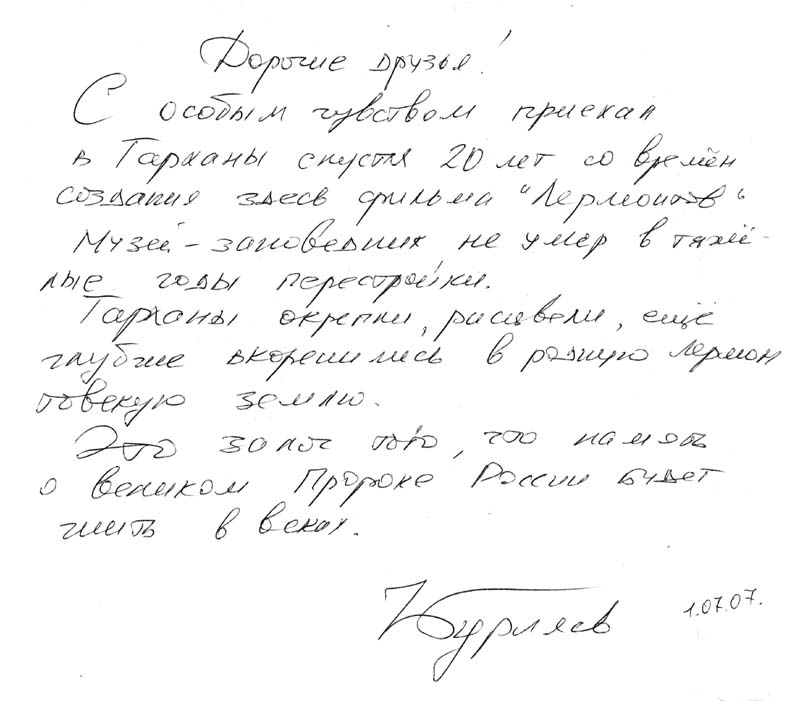 Дорогие друзья!
С особым чувством приехал
в Тарханы спустя 20 лет со времён
создания здесь фильма "Лермонтов"
Музей-заповедник не умер в тяжё-
лые годы перестройки.
Тарханы окрепли, расцвели, ещё
глубже вкоренились в родную Лермон
товскую землю.
Это залог того, что память
о великом Пророке России будет
жить в веках.
НБурляев 1.07.07.